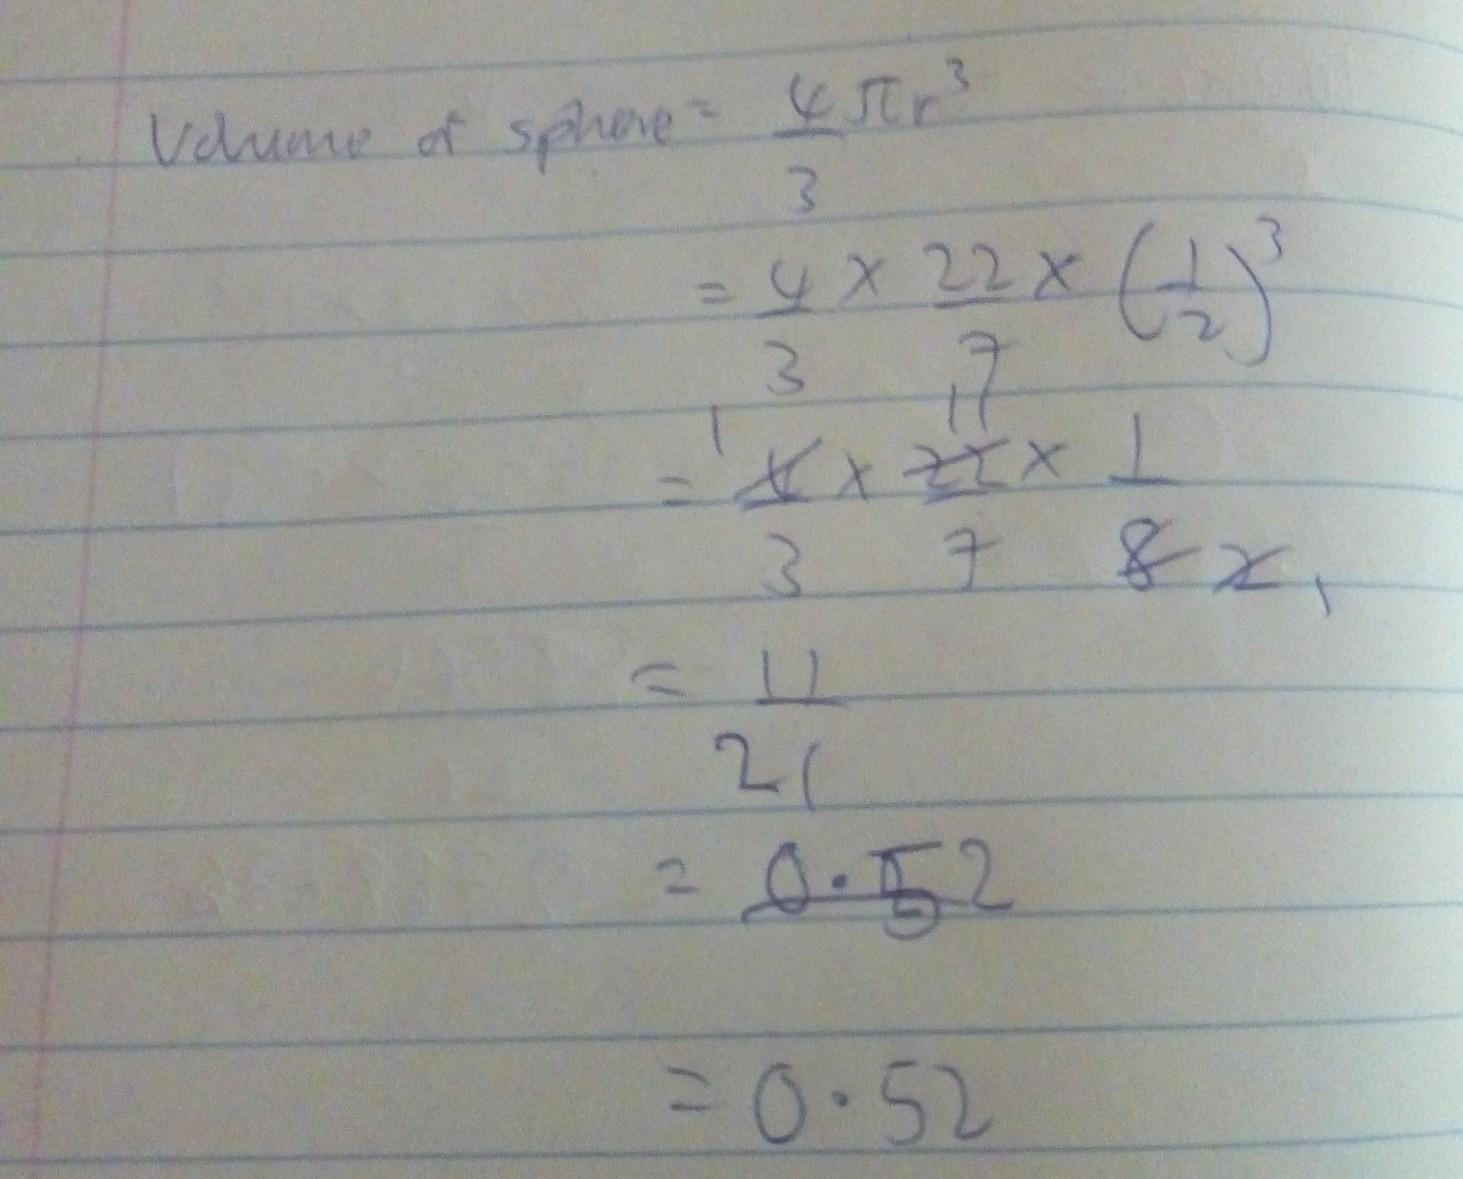 Volume of sphere = 4/3 πr³
= 4/3 × 22/7 × (1/2)³
= 4/3 × 22/7 × 1/8 1 11 2 1
= 11/21
= 0.52
= 0.52